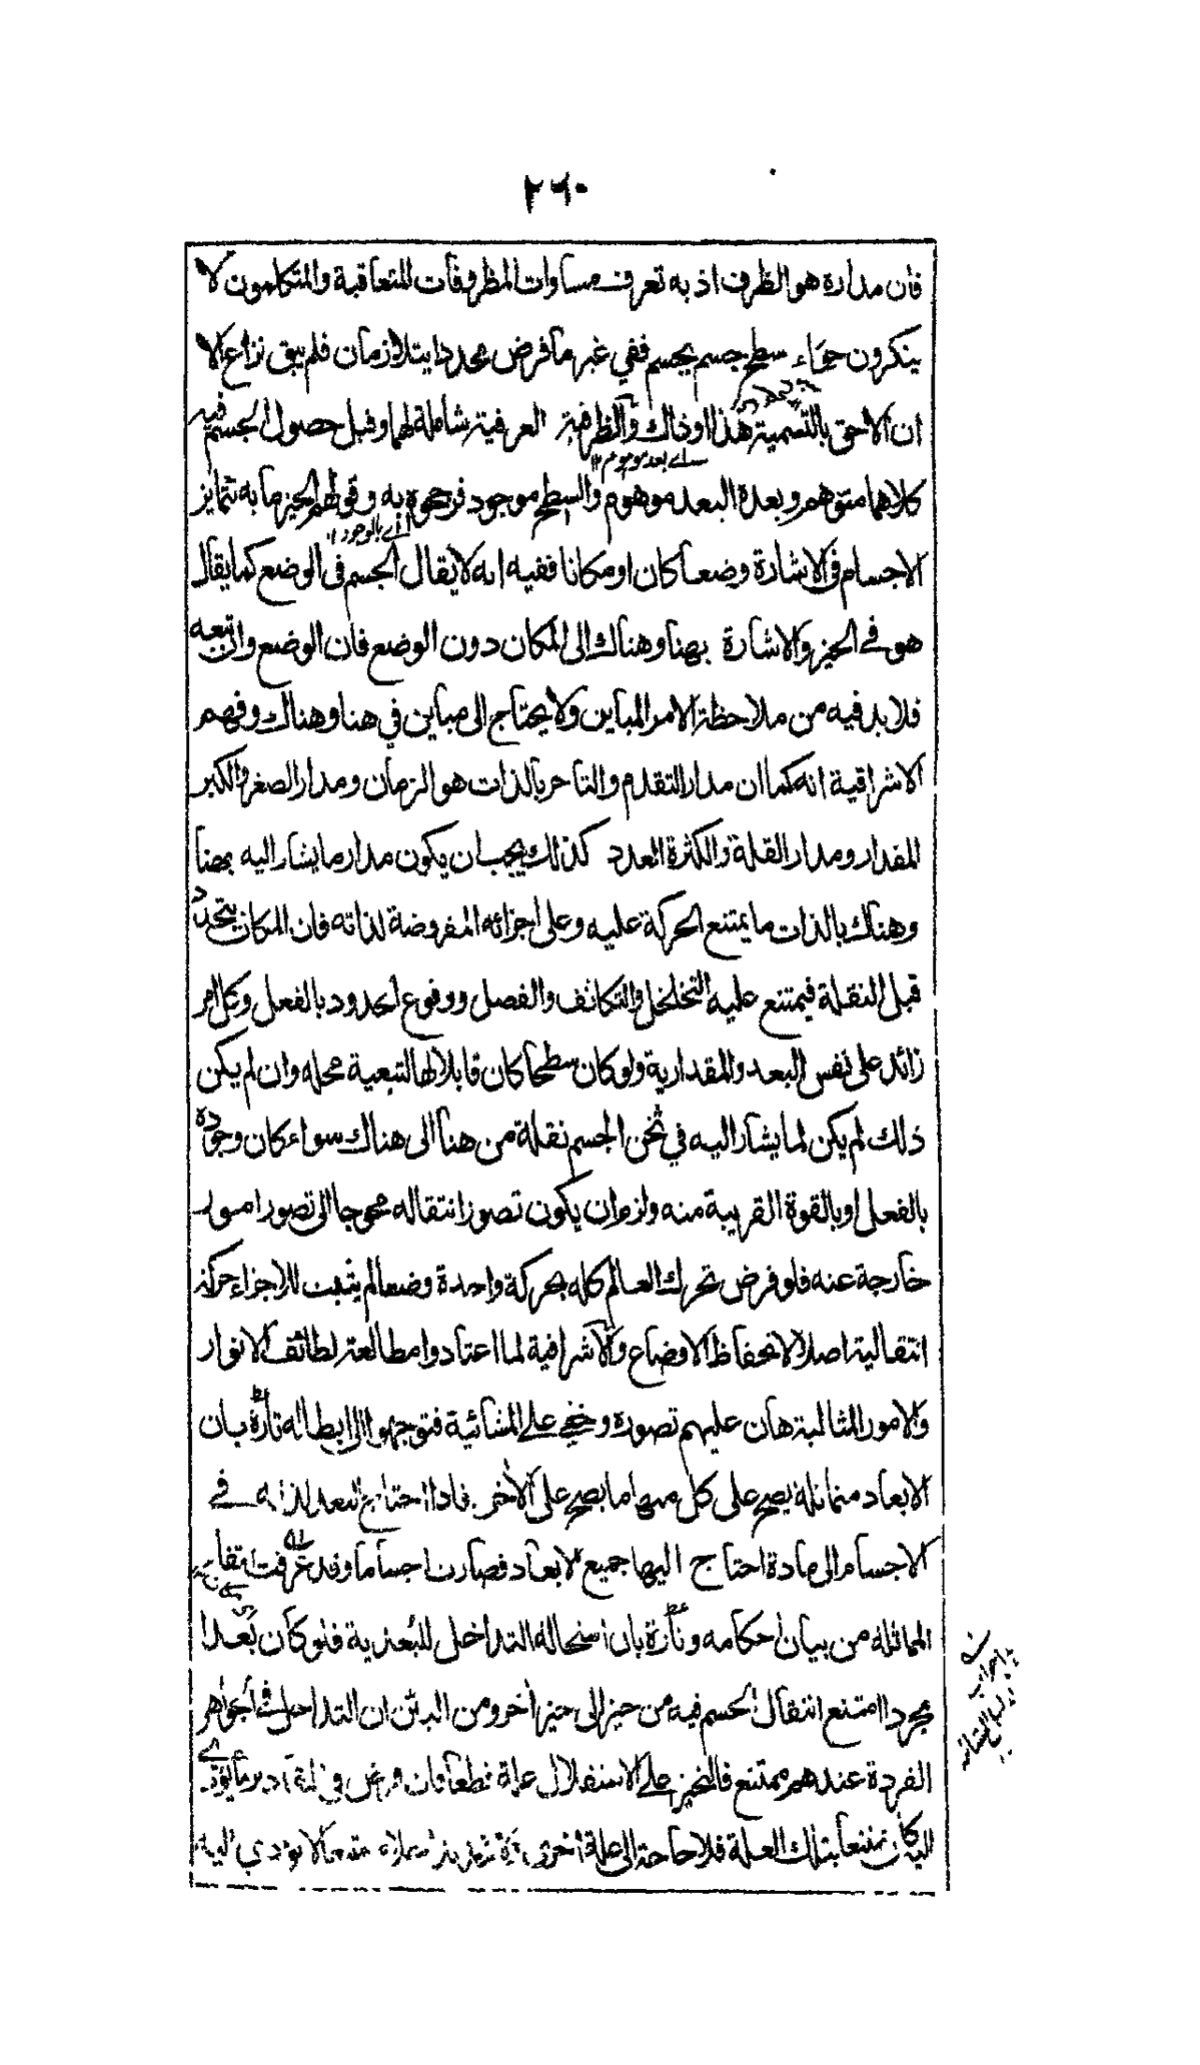 ٢٦٠
فان مداره هو الظرف اذ به تعرف مساوات المظروفات المتعاقبة والمتكلمون لا
ينكرون حواء سطح جسم بجسم ففي غير ما فرض محددا يتلازمان فلم يبق نزاع الا
ان الاحق بالتسمية هذا او ذاك والظرفية العرفية شاملة لهما وقبل حصول الجسم فيه
اے بعد موهوم ١٢
كلاهما متوهم وبعده البعد موهوم والسطح موجود فرجحوه به وقولهم الحيز ما به تمايز
اے بالوجود ١٢
الاجسام فى الاشارة وضعا كان او مكانا ففيه انه لا يقال الجسم فى الوضع كما يقال
هو فے الحيز والاشارة بهنا وهناك الى المكان دون الوضع فان الوضع وان تبعه
فلا بد فيه من ملاحظة الامر المباين ولا يحتاج الى مباين في هنا وهناك وفهم
الاشراقية انه كما ان مدار التقدم والتاخر بالذات هو الزمان ومدار الصغر والكبر
المقدار ومدار القلة والكثرة العدد كذلك يجب ان يكون مدار ما يشار اليه بهنا
وهناك بالذات ما يمتنع الحركة عليه وعلى اجزائه المفروضة لذاته فان المكان يتحدد
قبل النقلة فيمتنع عليه التخلخل والتكاثف والفصل ووقوع الحدود بالفعل وكل امر
زائد على نفس البعد والمقدارية ولو كان سطحا كان قابلا لها لتبعية محله وان لم يكن
ذلك لم يكن لما يشار اليه في ثخن الجسم نقلة من هنا الى هناك سواء كان وجوده
بالفعل او بالقوة القريبة منه ولزم ان يكون تصور انتقاله محوجا الى تصور امور
خارجة عنه فلو فرض تحرك العالم كله بحركة واحدة وضعا لم يثبت للاجزاء حركة
انتقالية اصلا لانحفاظ الاوضاع والاشراقية لما اعتادوا مطالعة لطائف الانوار
والامور المثالية هان عليهم تصوره وخفے على المشائية فتوجهوا الى ابطاله تارة بان
الابعاد متماثلة يصح على كل منها ما يصح على الاخر فاذا احتاج البعد لذاته فے
الاجسام الى مادة احتاج اليها جميع الابعاد فصارت اجساما وقد عرفت انتفاء
المماثلة من بيان احكامه وتارة بان استحالة التداخل للبعدية فلو كان بعدا
مجردا امتنع انتقال الجسم فيه من حيز الى حيز اخر ومن البائن ان التداخل فے الجواهر
الفردة عندهم ممتنع فالتحيز على الاستقلال علة قطعا فان فرض
كان ممتنعا بتلك العلة فلا حاجة الى علة اخرى